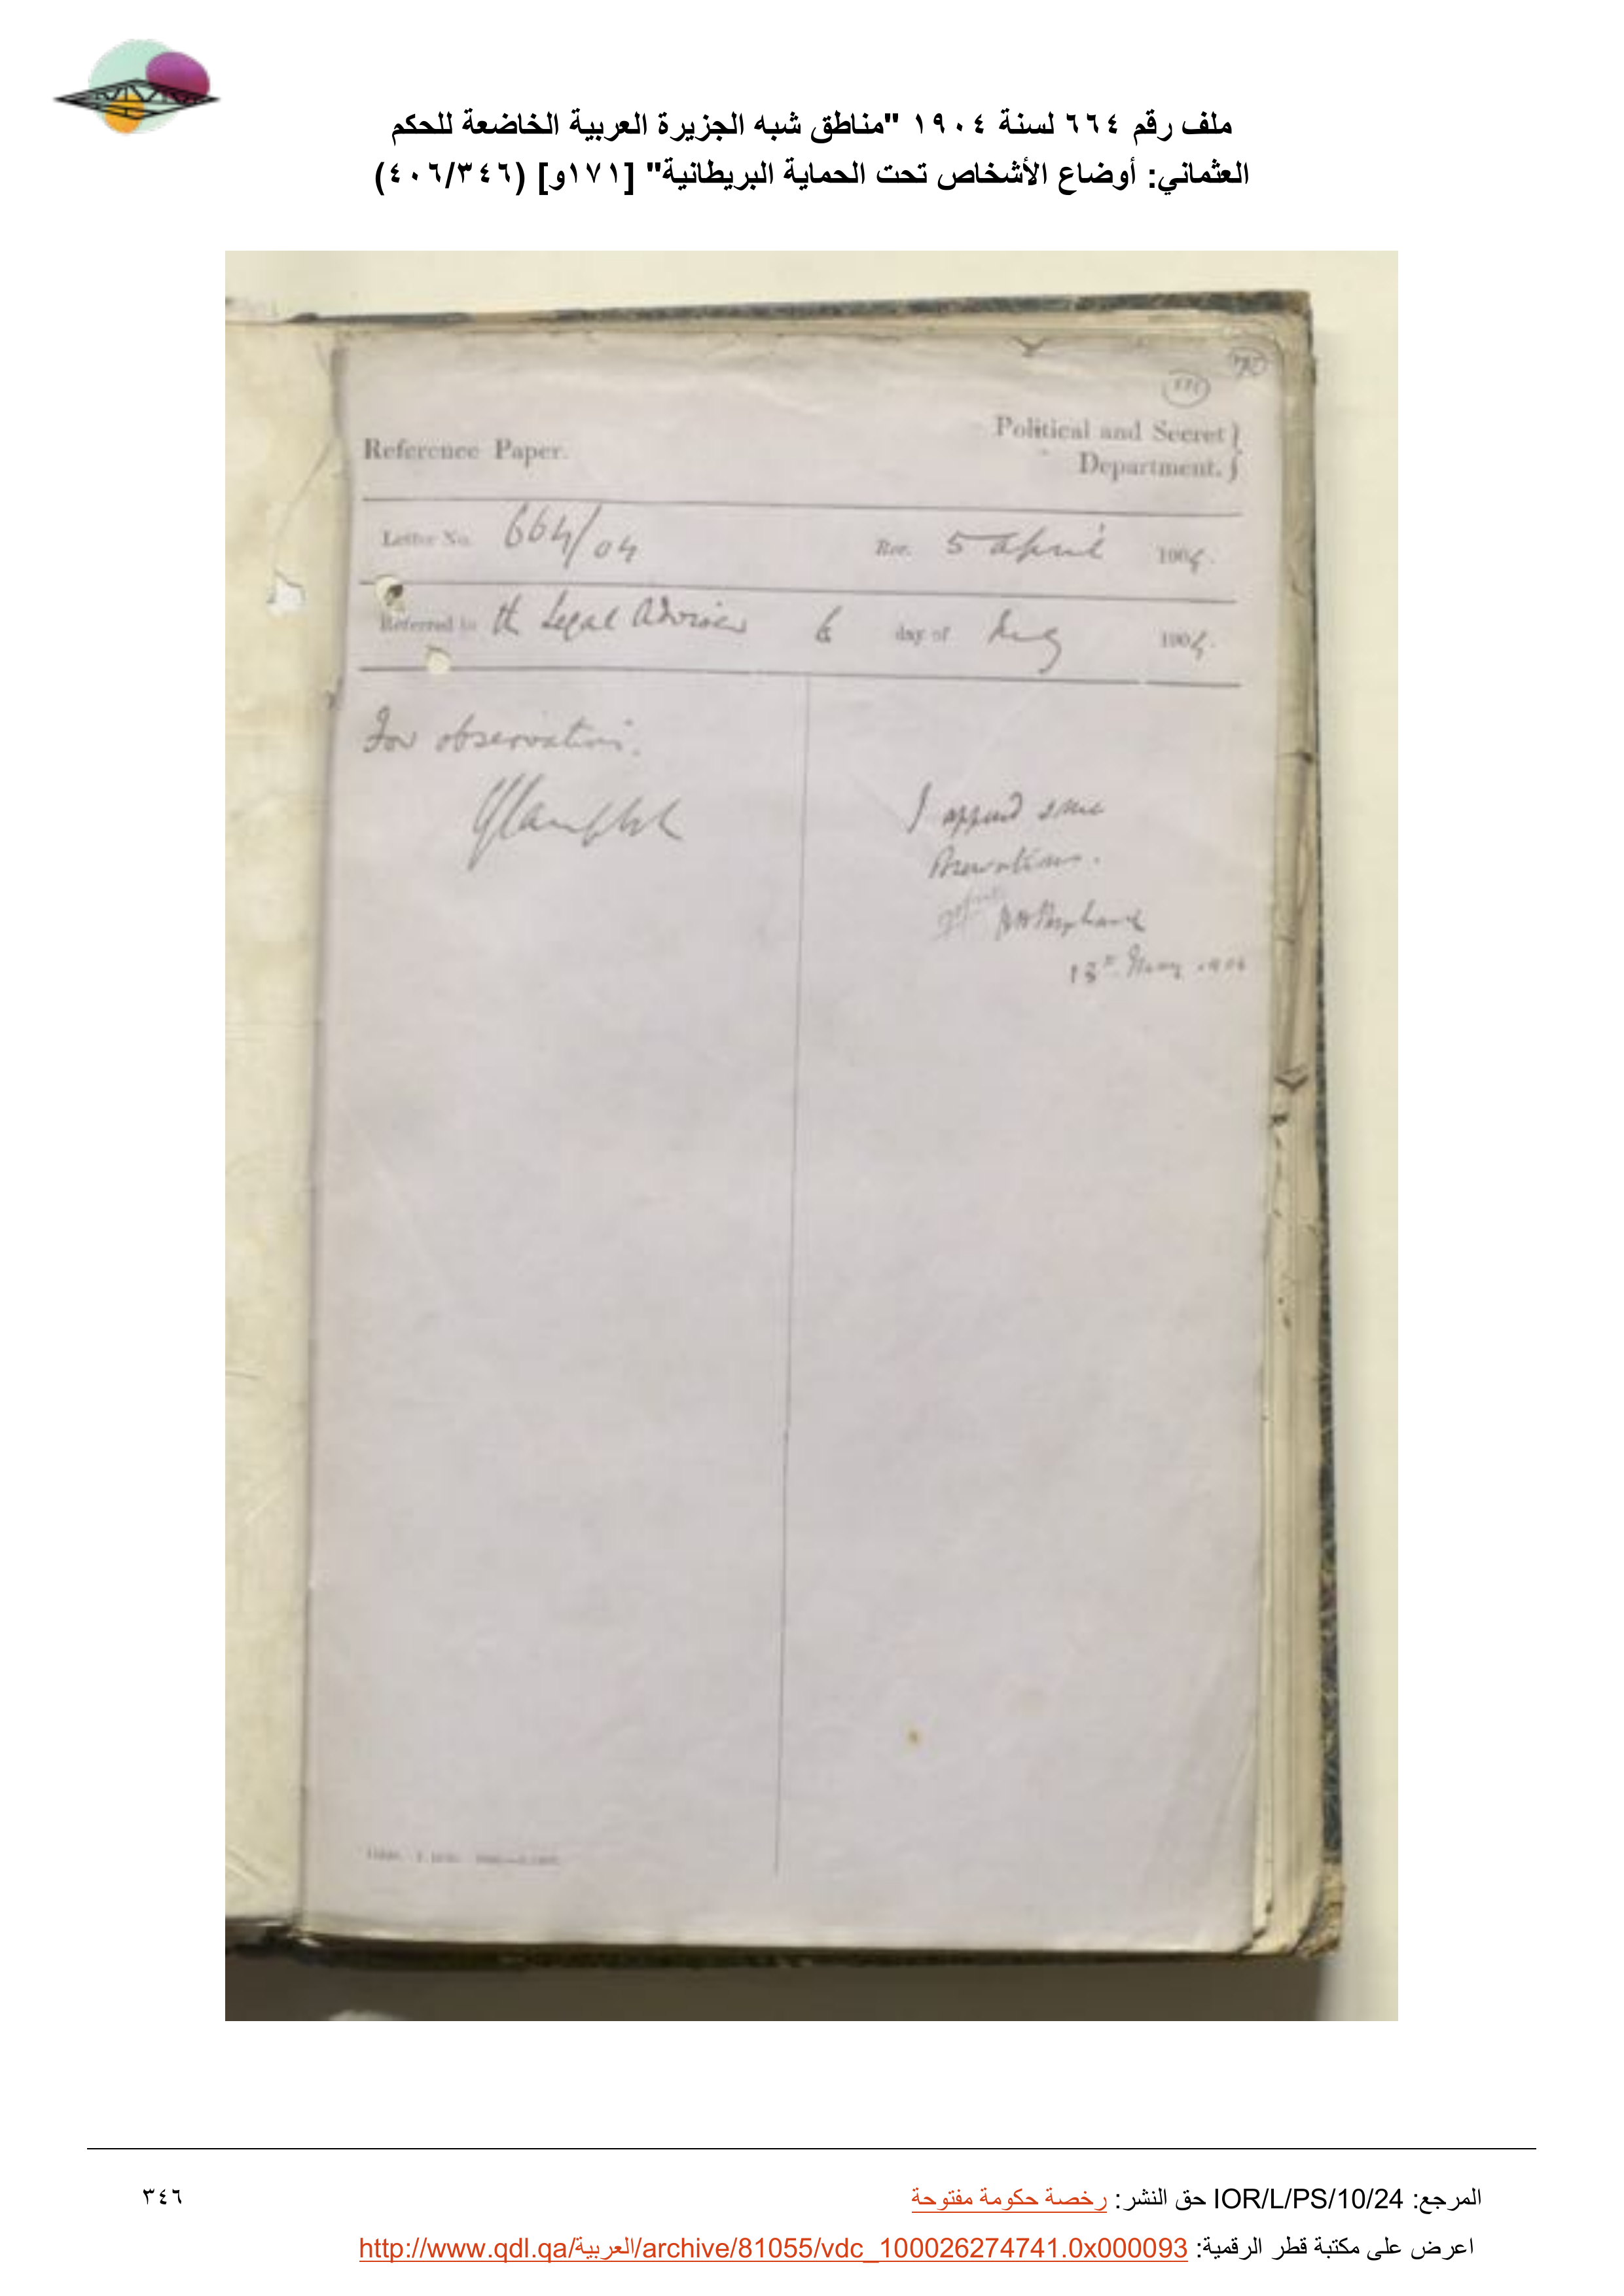 ملف رقم ٦٦٤ لسنة ١٩٠٤ "مناطق شبه الجزيرة العربية الخاضعة للحكم
العثماني: أوضاع الأشخاص تحت الحماية البريطانية" [١٧١و] (٤٠٦/٣٤٦)
Political and Secret
Reference Paper.
Department.
Letter No. 664/04 Rec. 5 April 190
Referred to the Legal Adviser 6 day of 190
For observation.
I append some
observations.
13th May
المرجع: IOR/L/PS/10/24 حق النشر: رخصة حكومة مفتوحة
٣٤٦
اعرض على مكتبة قطر الرقمية: http://www.qdl.qa/العربية/archive/81055/vdc_100026274741.0x000093